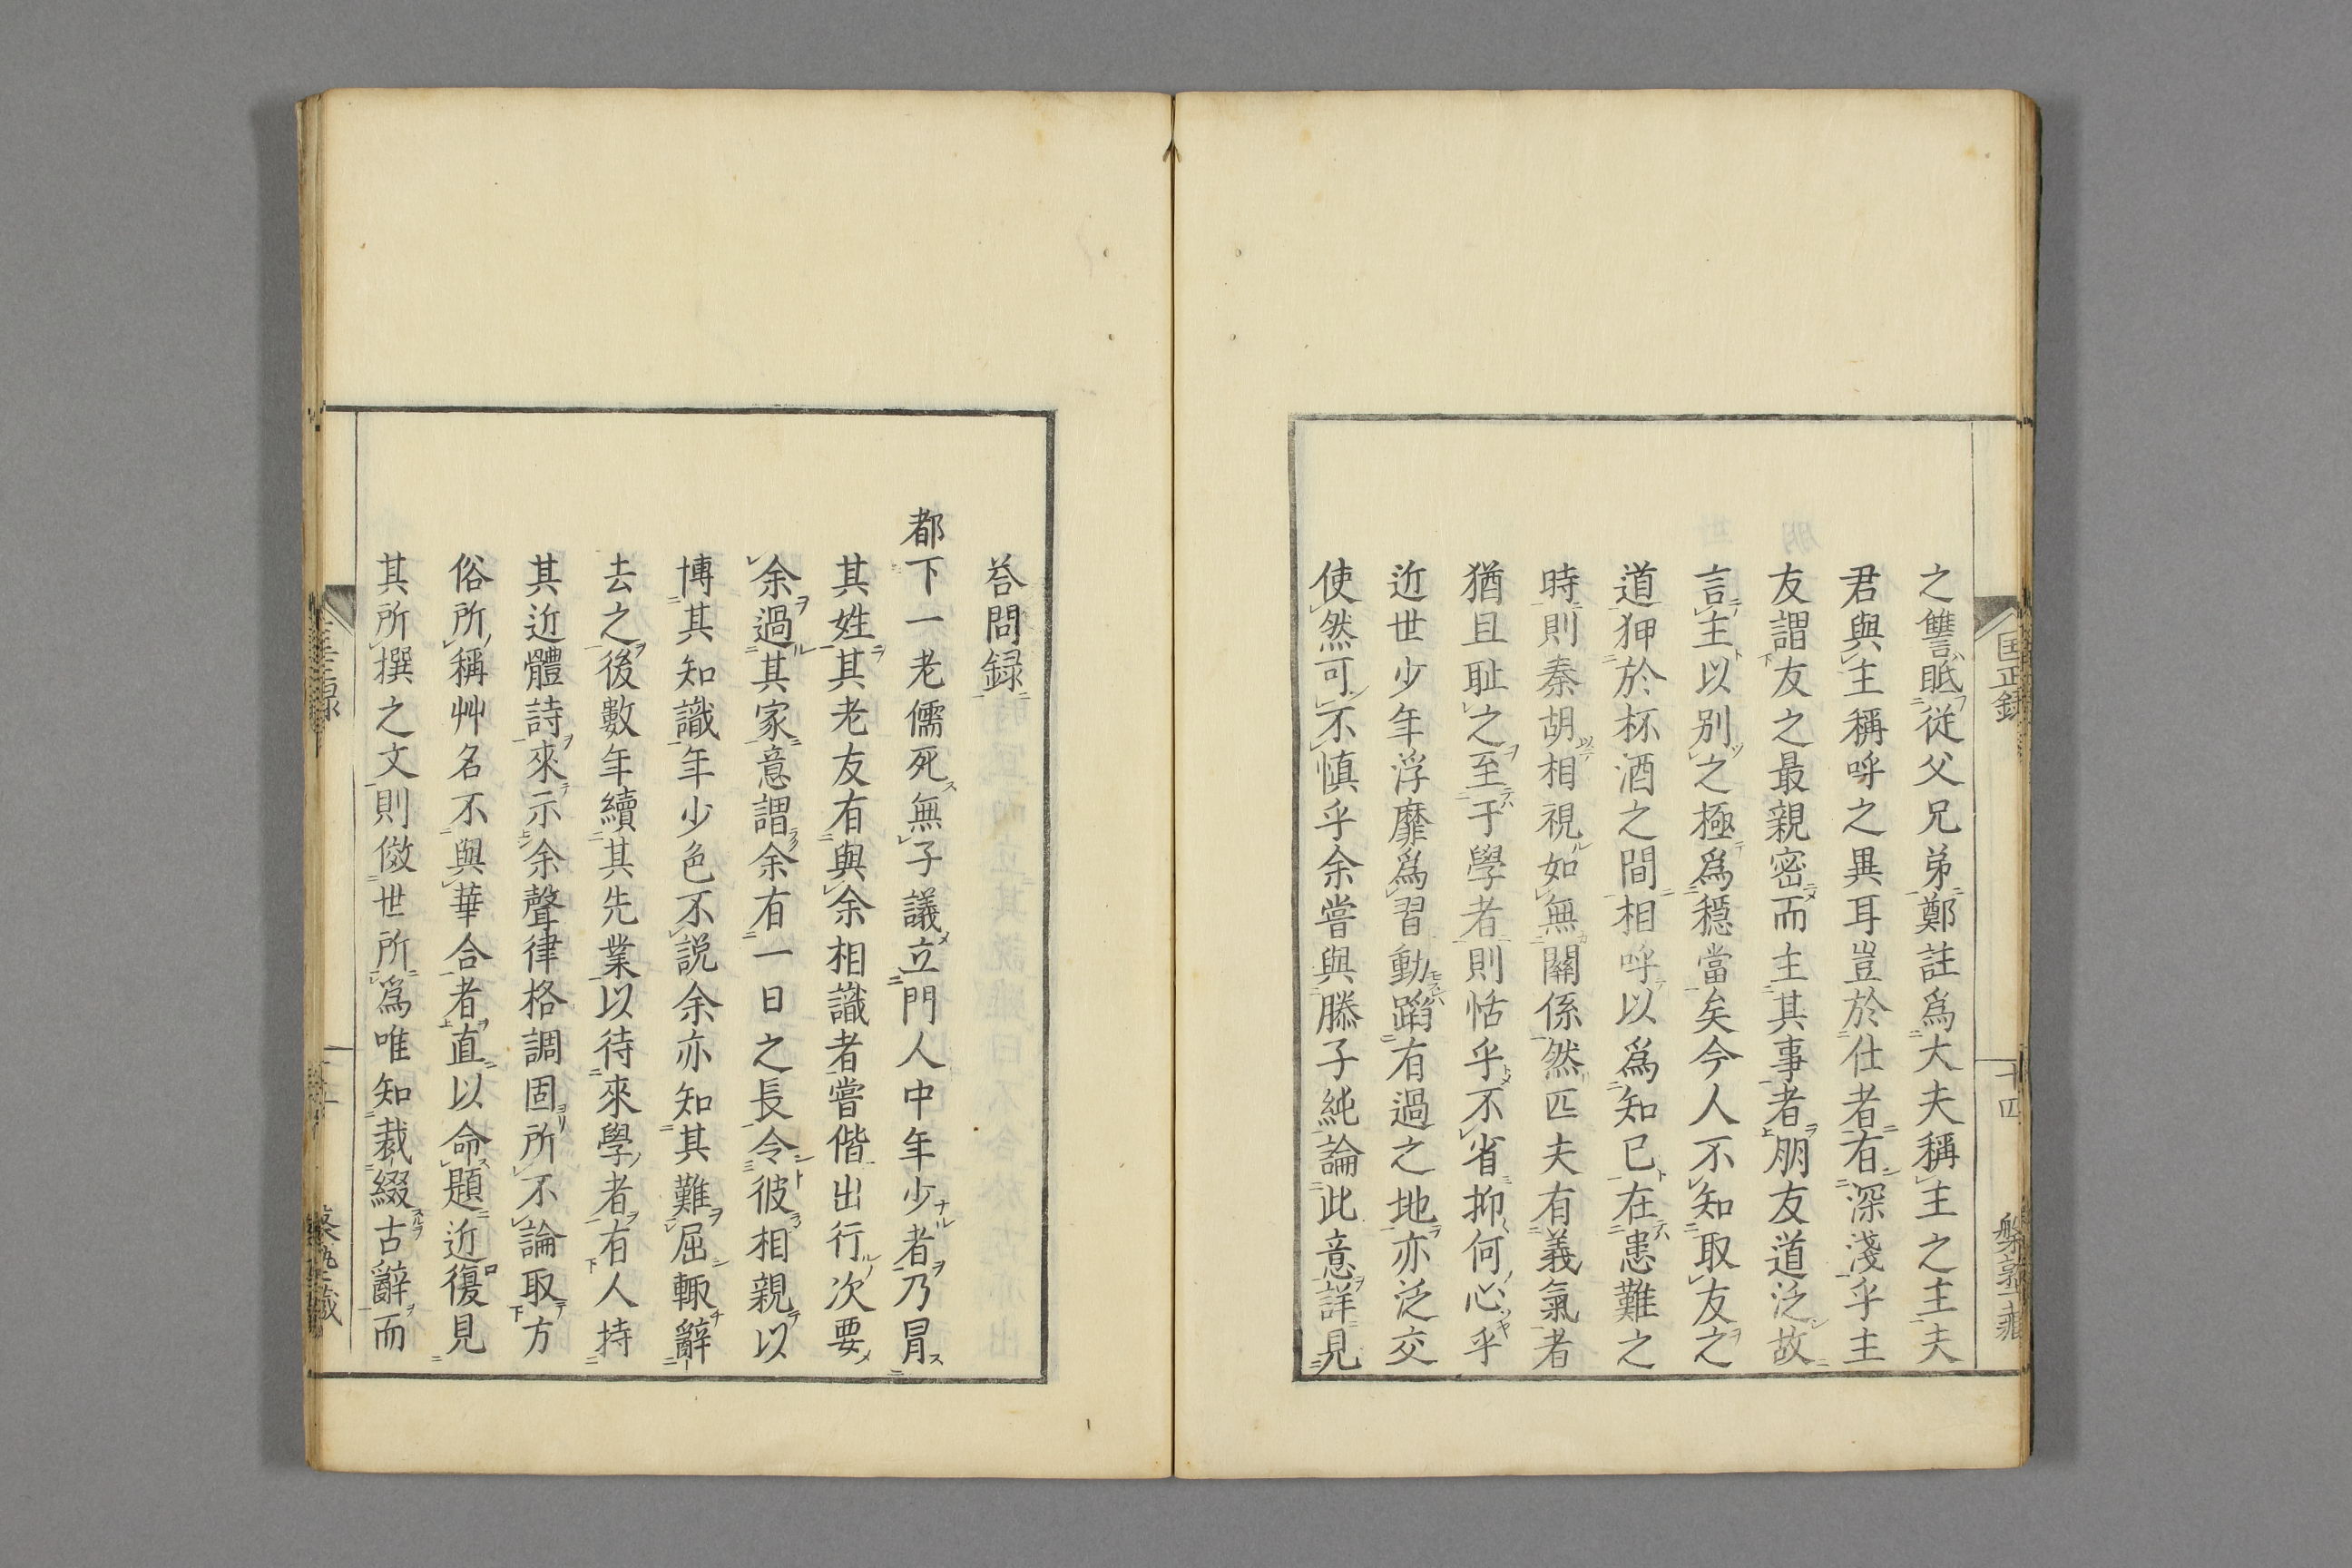 匡正録
十四
之讐眡從父兄弟鄭註爲大夫稱主之主夫
君與主稱呼之異耳豈於仕者有深淺乎主
友謂友之最親密而主其事者朋友道泛故
言主以別之極爲穩當矣今人不知取友之
道狎於杯酒之間相呼以爲知已在患難之
時則秦胡相視如無關係然匹夫有義氣者
猶且耻之至于學者則恬乎不省抑何心乎
近世少年浮靡爲習動蹈有過之地亦泛交
使然可不慎乎余嘗與滕子純論此意詳見
荅問録
都下一老儒死無子議立門人中年少者乃冐
其姓其老友有與余相識者嘗偕出行次要
余過其家意謂余有一日之長令彼相親以
博其知識年少色不説余亦知其難屈輙辭
去之後數年續其先業以待來學者有人持
其近體詩來示余聲律格調固所不論取方
俗所稱艸名不與華合者直以命題近復見
其所撰之文則傚世所爲唯知裁綴古辭而